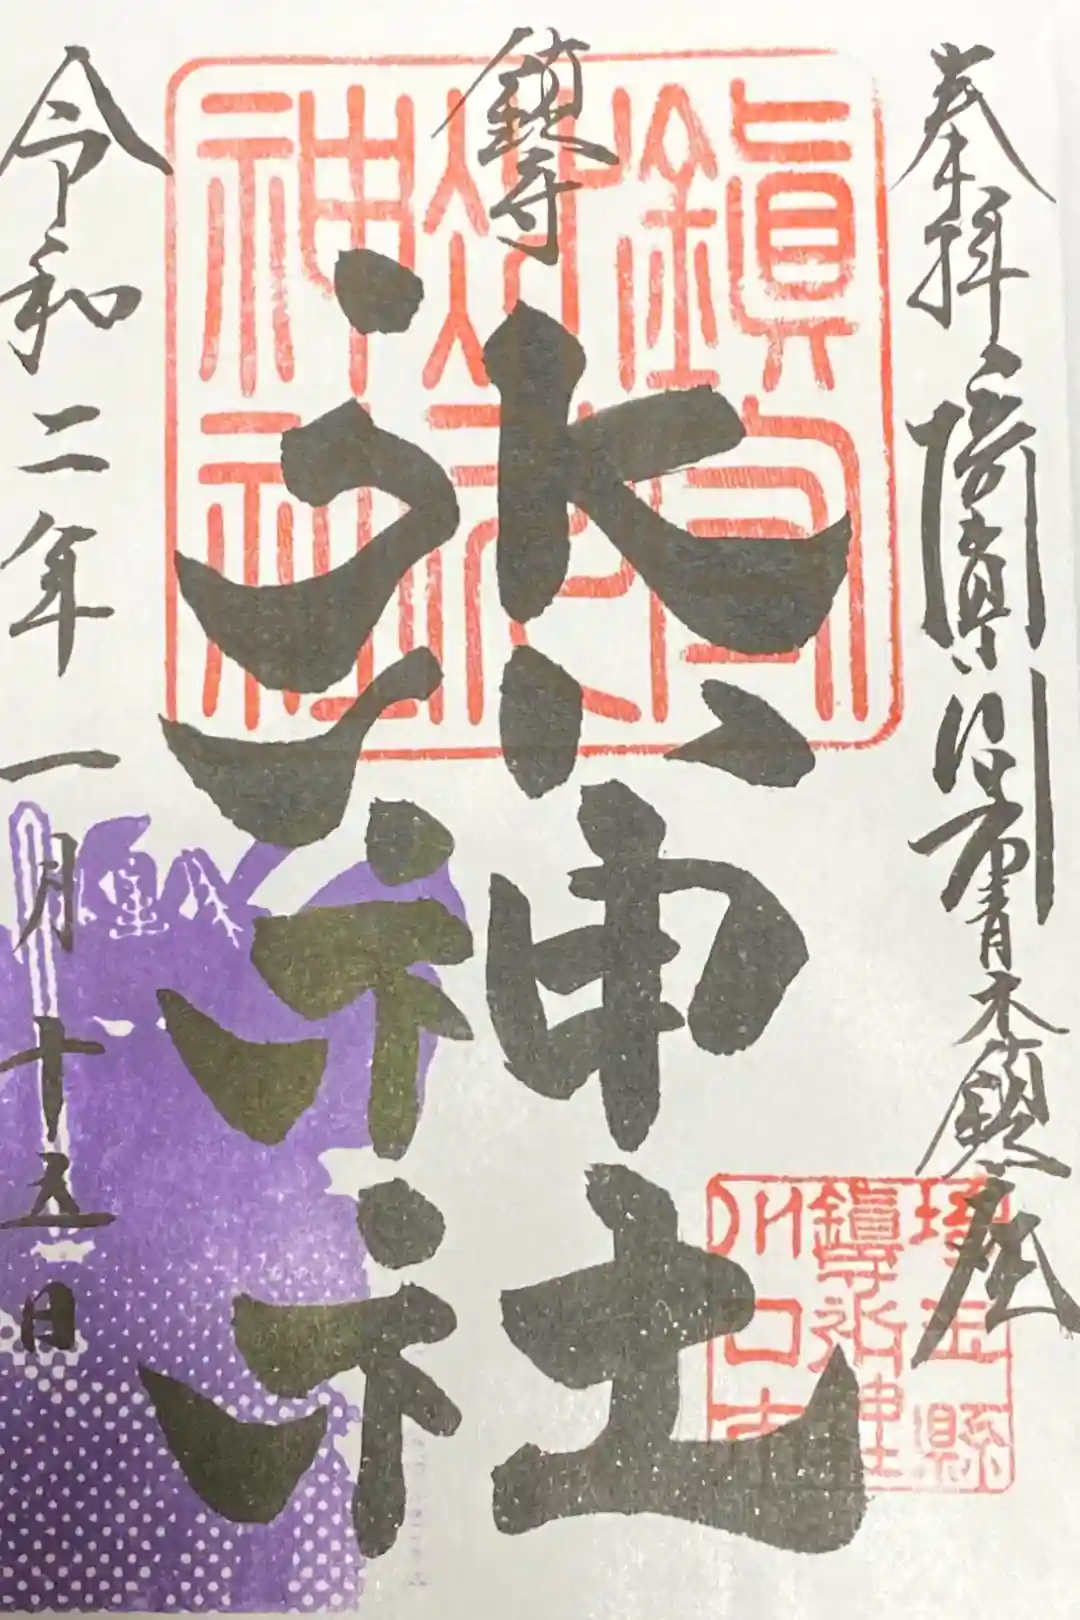 奉拝 埼玉県川口市青木鎮座
鎮守
氷川神社
令和二年一月十五日
鎮守氷川神社
埼玉縣
鎮守氷川神社
川口市